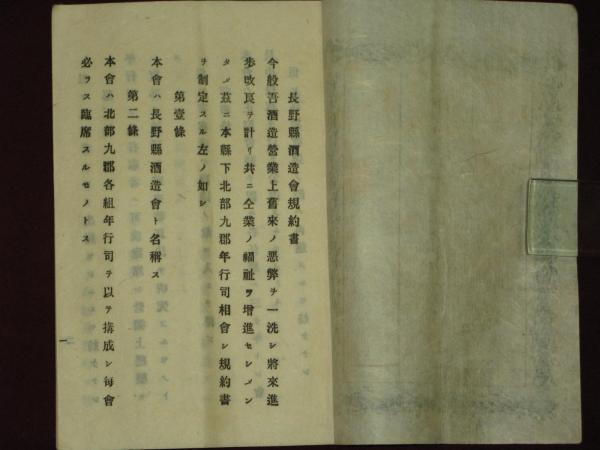 長野縣酒造會規約書
今般吾酒造營業上舊來ノ惡弊ヲ一洗シ將來進
歩改良ヲ計リ共ニ仝業ノ福祉ヲ增進セシメン
タメ茲ニ本縣下北部九郡年行司相會シ規約書
ヲ制定スル左ノ如シ
第壹條
本會ハ長野縣酒造會ト名稱ス
第二條
本會ハ北部九郡各組年行司ヲ以テ搆成シ每會
必ラス臨席スルモノトス
一